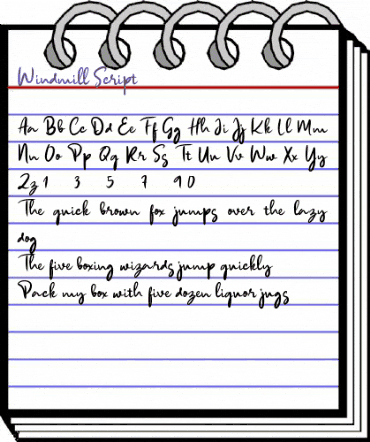 Windmill Script
Aa Bb Cc Dd Ee Ff Gg Hh Ii Jj Kk Ll Mm
Nn Oo Pp Qq Rr Ss Tt Uu Vv Ww Xx Yy
Zz 1 3 5 7 9 0
The quick brown fox jumps over the lazy
dog
The five boxing wizards jump quickly
Pack my box with five dozen liquor jugs